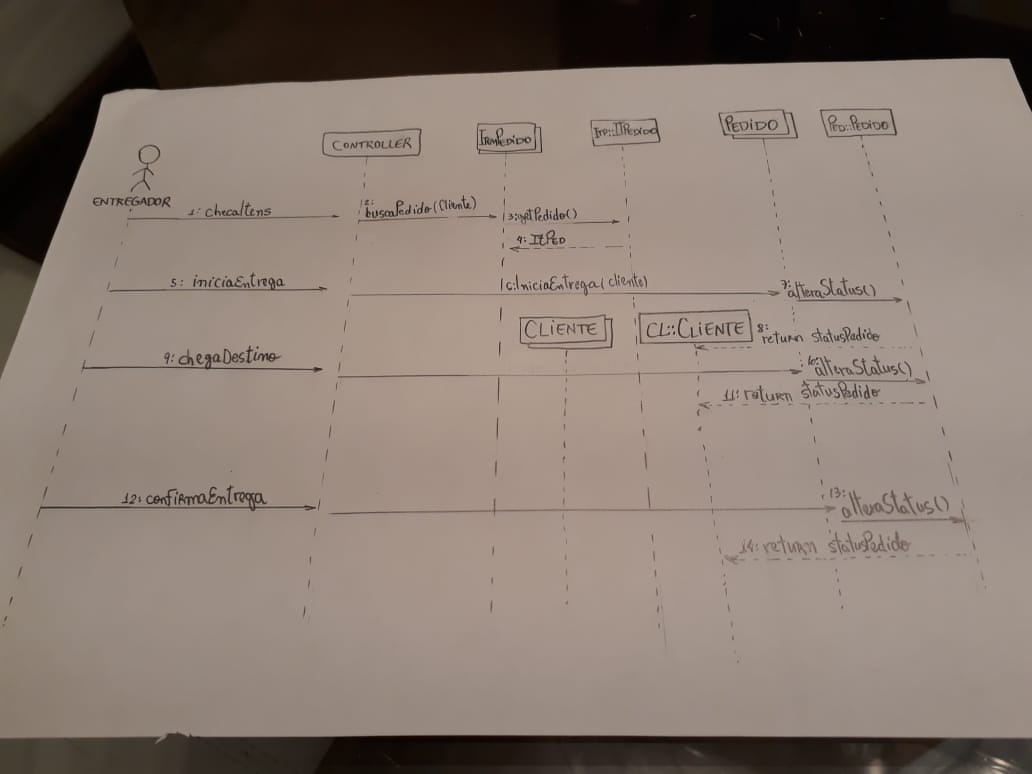 ENTREGADOR
CONTROLLER
ITEMPEDIDO
ITP::ITPEDIDO
PEDIDO
PED::PEDIDO
1: checaItens
2: buscaPedido(Cliente)
3: getPedido()
4: ItPED
5: iniciaEntrega
6: IniciaEntrega(cliente)
7: alteraStatus()
CLIENTE
CL::CLIENTE
8: return statusPedido
9: chegaDestino
10: alteraStatus()
11: return statusPedido
12: confirmaEntrega
13: alteraStatus()
14: return statusPedido